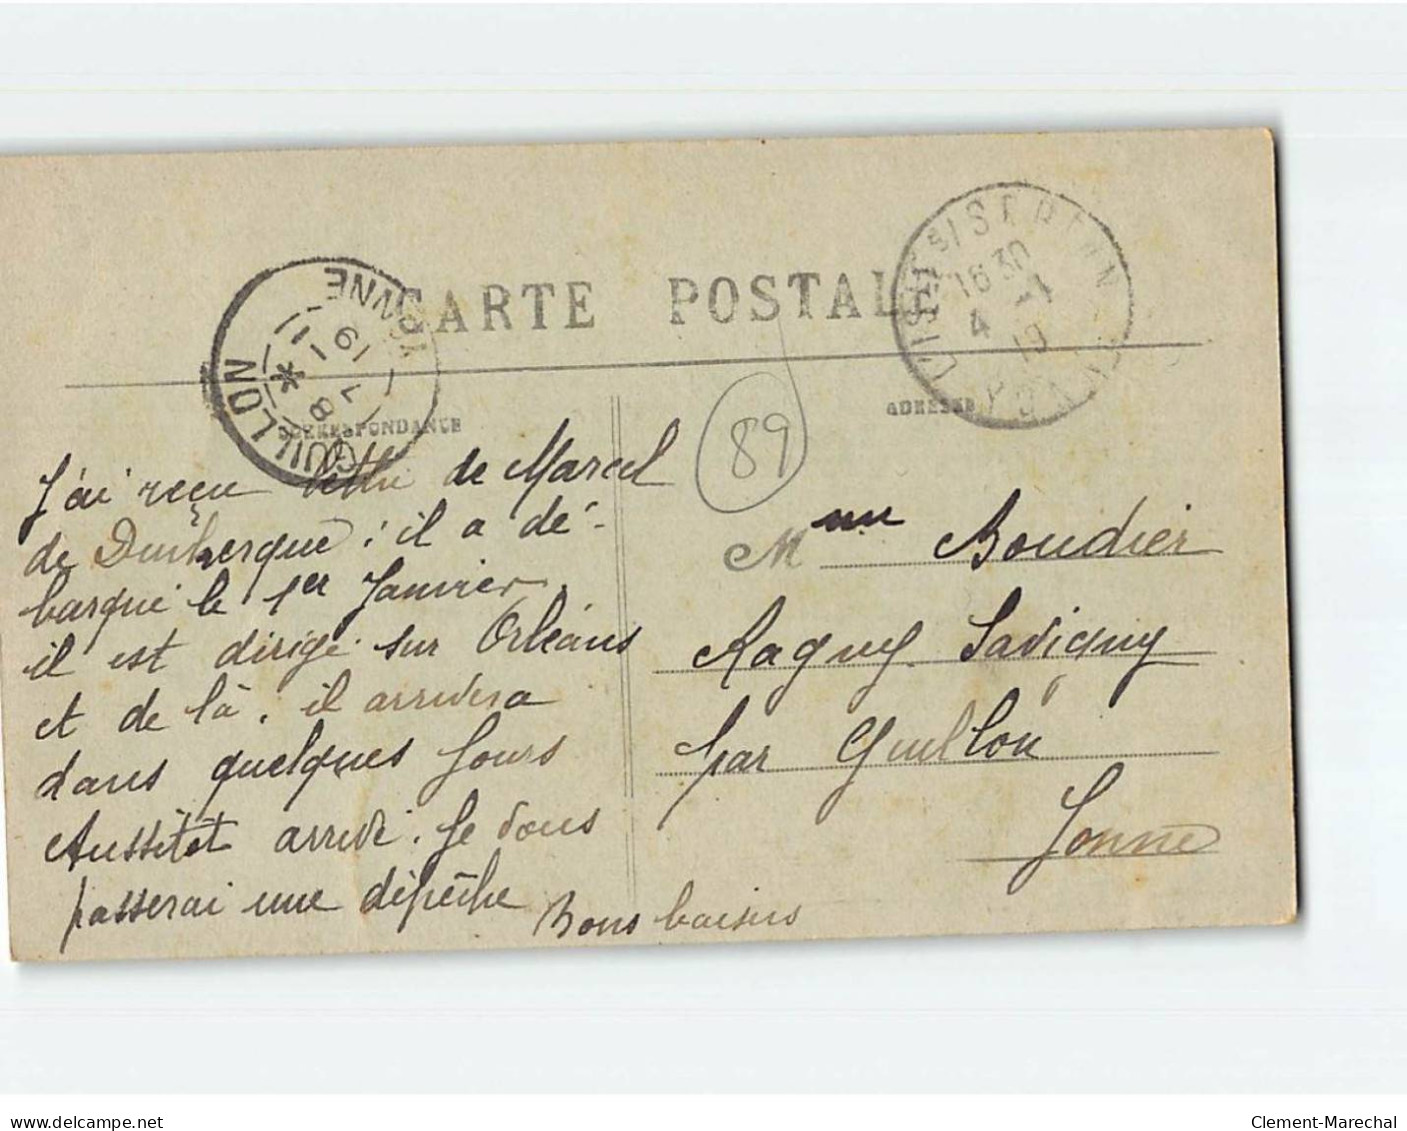 CARTE POSTALE
CORRESPONDANCE
ADRESSE
GUILLON
YONNE
8 *
7 1
19
16 30
4 -1
19
YONNE
89
J'ai reçu lettre de Marcel
de Dunkerque ; il a dé-
barqué le 1er Janvier,
il est dirigé sur Orléans
et de là, il arrivera
dans quelques jours
Aussitôt arrivé. Je vous
passerai une dépêche
Bons baisers
Mme Boudier
Ragny Savigny
par Guillon
Yonne
delcampe.net
Clement-Marechal